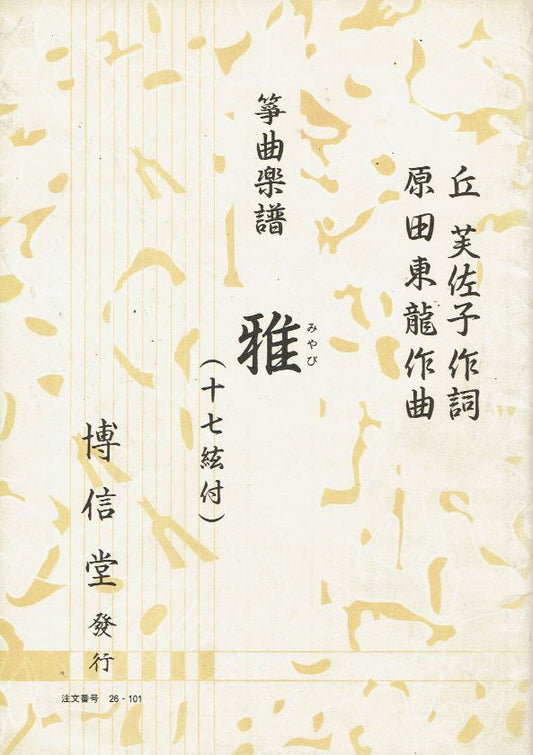 丘 芙佐子 作詞
原田東龍 作曲
箏曲楽譜
雅
みやび
（十七絃付）
博信堂 發行
注文番号 26-101